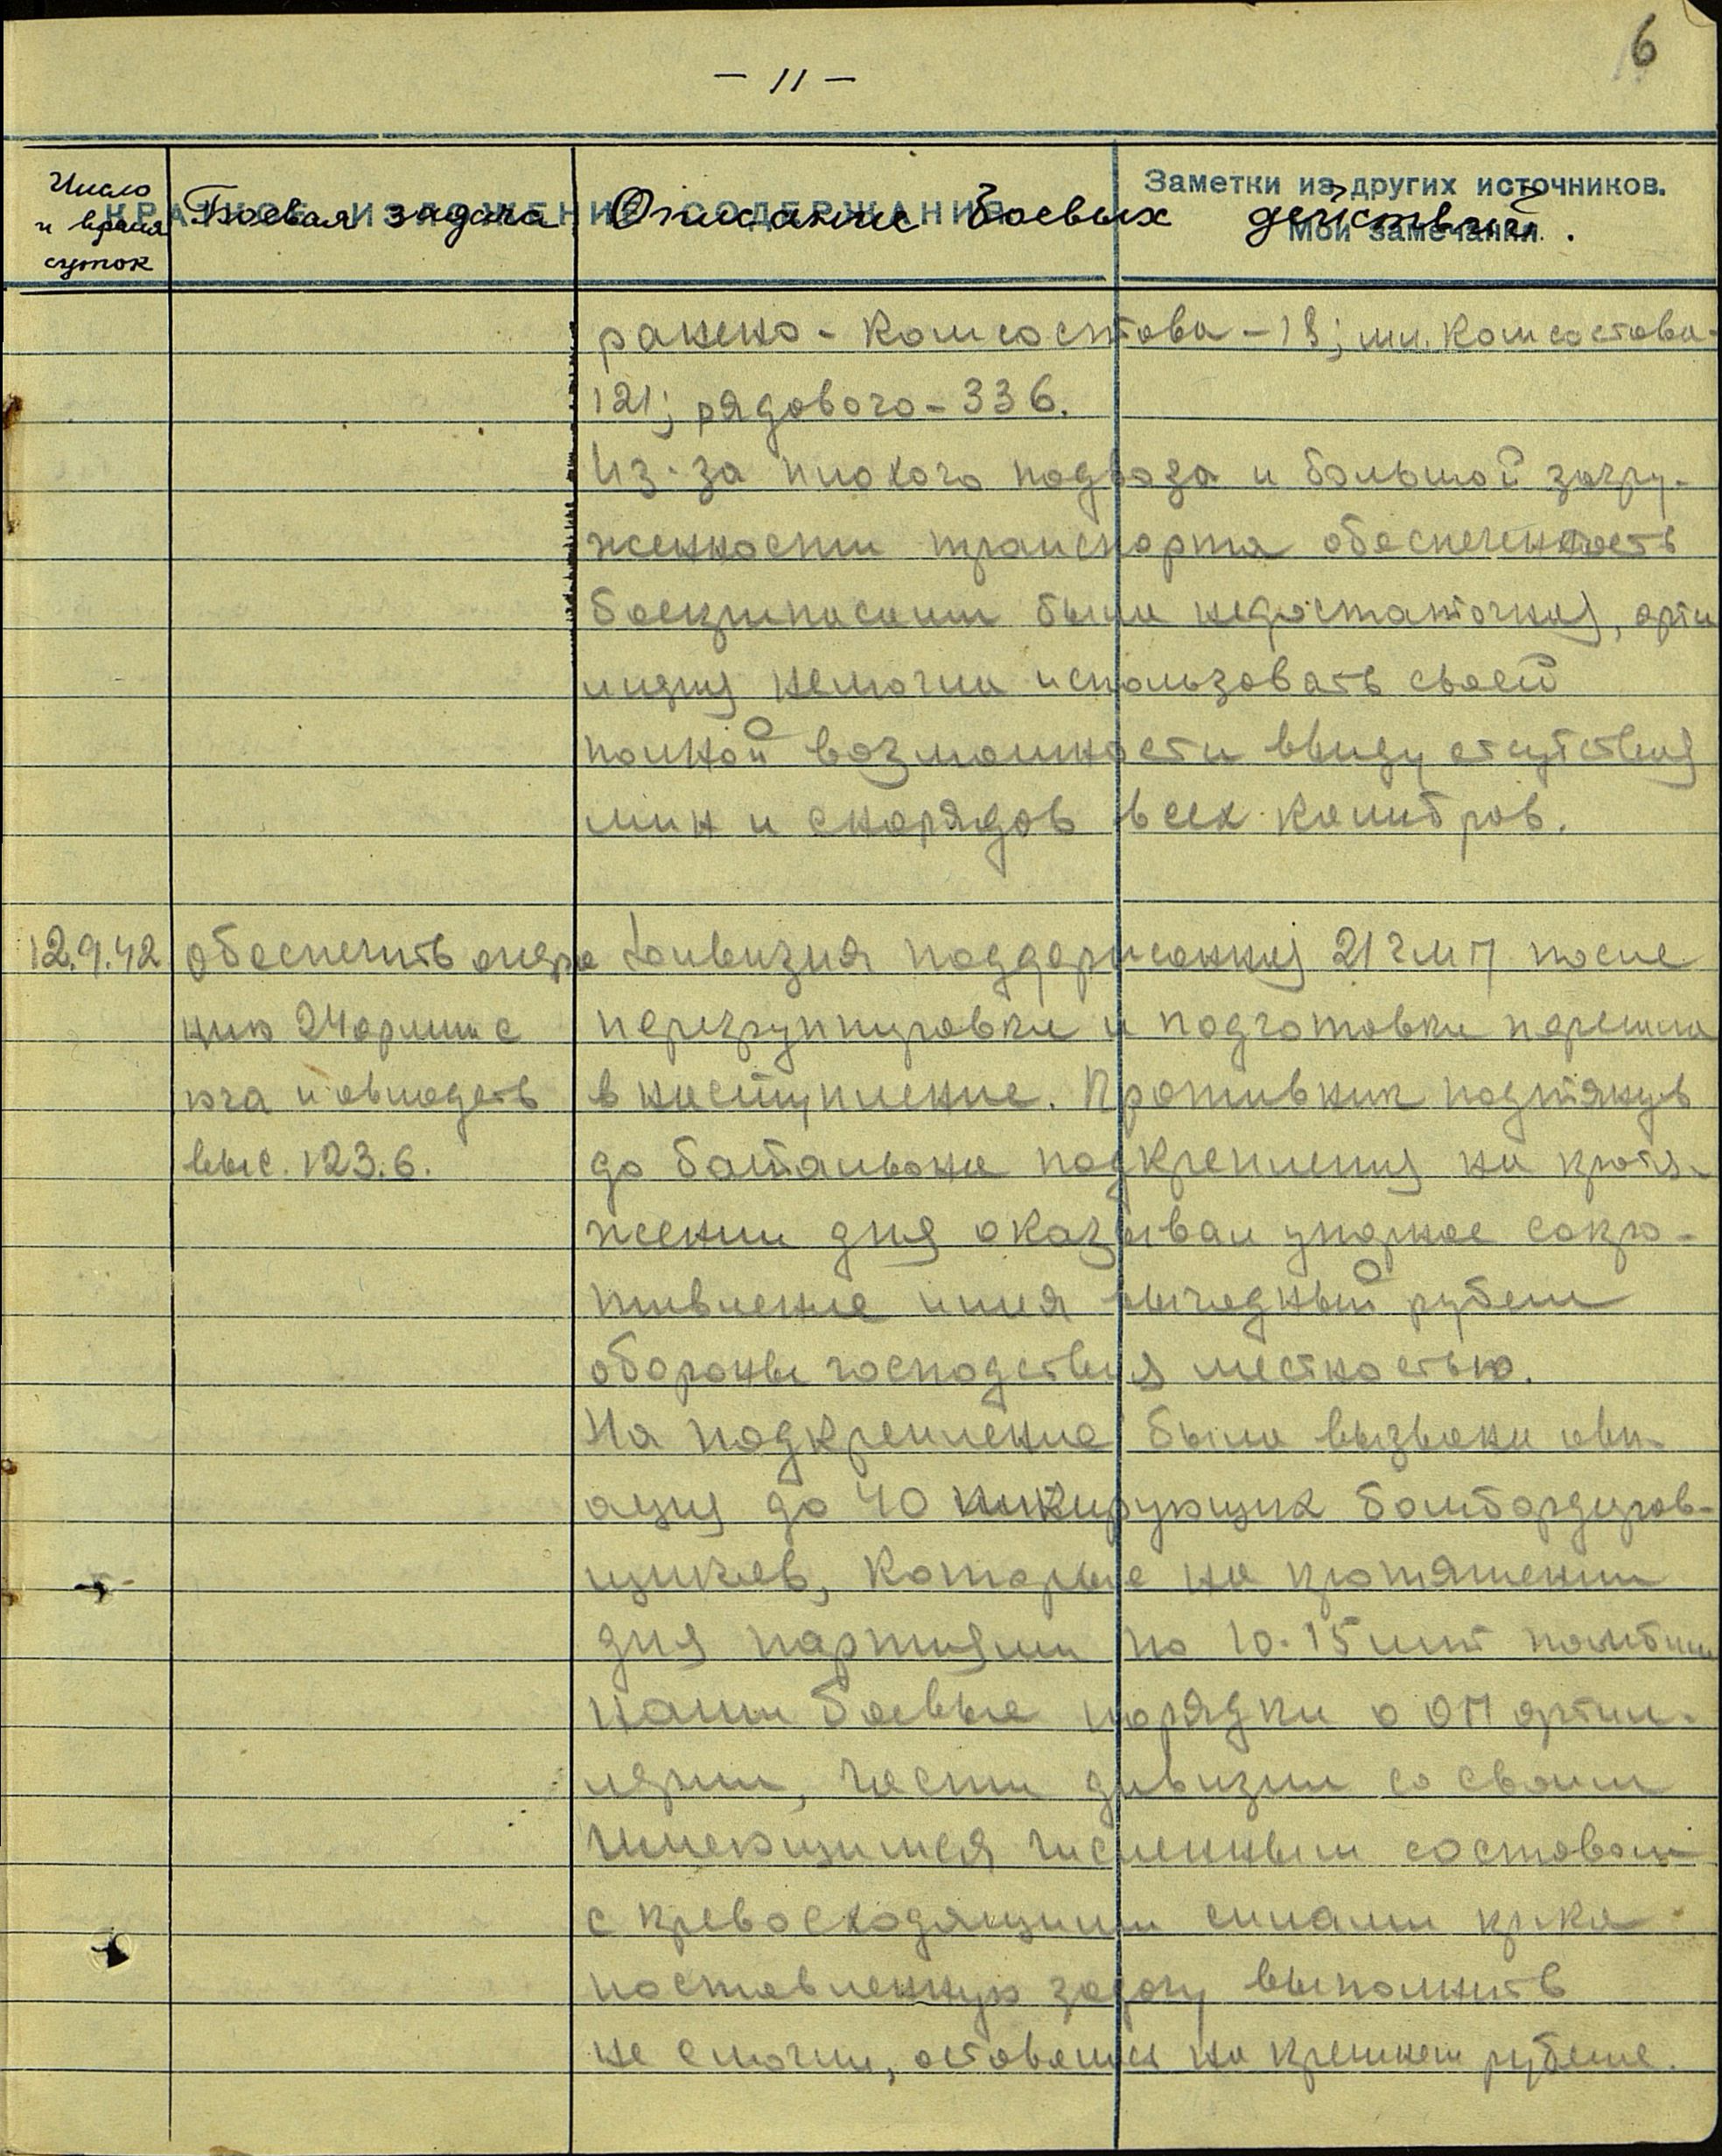 6
- 11 -
Число
и время
суток
Боевая задача
Описание боевых действий.
КРАТКОЕ ИЗЛОЖЕНИЕ СОДЕРЖАНИЯ
Заметки из других источников.
Мои замечания.
ранено - комсостава - 18; мл. комсостава -
121; рядового - 336.
Из-за плохого подвоза и большой загру-
женности транспорта обеспеченность
боеприпасами была недостаточная, арти
лерия не могли использовать своей
полной возможности ввиду отсутствия
мин и снарядов всех калибров.
12.9.42
обеспечить опера
цию 24 армии с
юга и овладеть
выс. 123.6.
Дивизия поддержанная 21 ГМП после
перегруппировки и подготовки перешла
в наступление. Противник подтянув
до батальона подкрепления на протя-
жении дня оказывал упорное сопро-
тивление имея выгодный рубеж
обороны господствуя местностью.
На подкрепление была вызвана ави-
ация до 40 пикирующих бомбардиров-
щиков, которые на протяжении
дня партиями по 10-15 шт бомбили
наши боевые порядки и ОП артил-
лерии, части дивизии со своим
имеющимся численным составом
с превосходящими силами пр-ка
поставленную задачу выполнить
не смогли, оставаясь на прежнем рубеже.